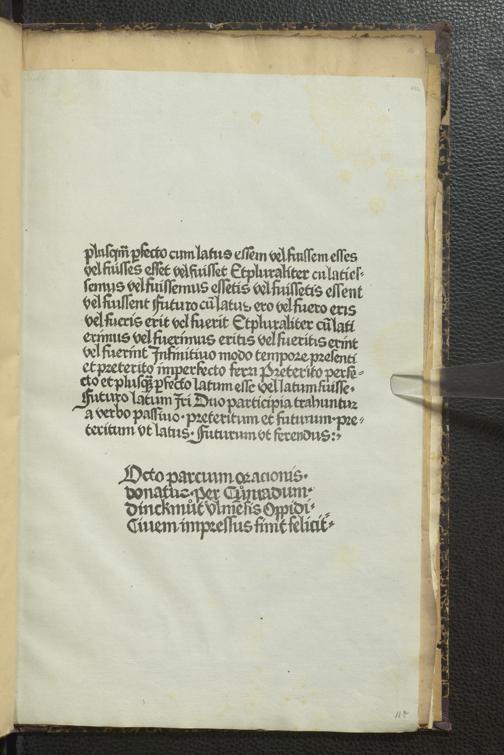 plusqm̄ ꝑfecto cum latus essem vel fuissem esses
vel fuisses esset vel fuisset Et pluraliter cū laties⸗
semus vel fuissemus essetis vel fuissetis essent
vel fuissent Futuro cū latus ero vel fuero eris
vel fueris erit vel fuerit Et pluraliter cū lati
erimus vel fuerimus eritis vel fueritis erint
vel fuerint Infinitiuo modo tempore presenti
et preterito imperfecto ferri Preterito perfe⸗
cto et plusq̄ ꝑfecto latum esse vel latum fuisse·
Futuro latum Iri Duo participia trahuntur
a verbo passiuo· preteritum et futurum· pre⸗
teritum vt latus· Futurum vt ferendus:·
Octo parcium oracionis·
donatus· Per Cůnradum·
dinckmůt vlmēsis Oppidi·
Ciuem impressus finit felicit̄·